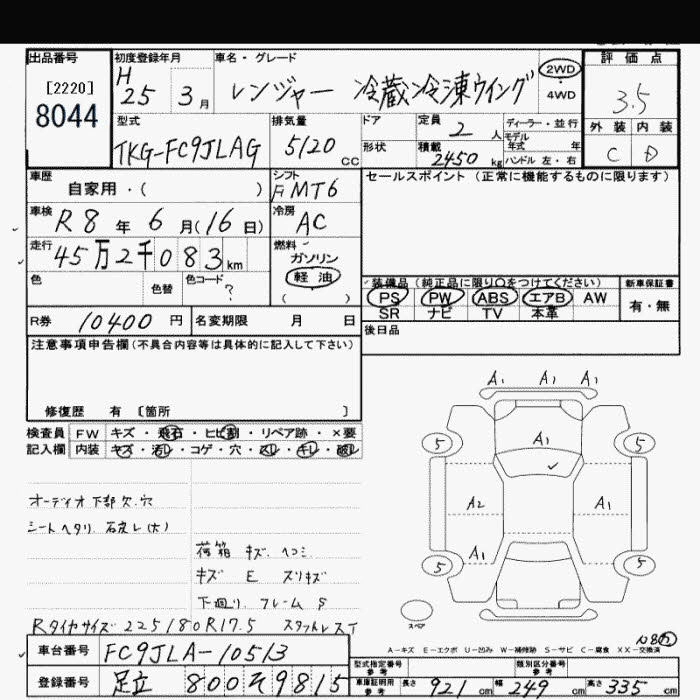 出品番号 初度登録年月 車名・グレード 評価点
[2220] H 25 3月 レンジャー 冷蔵冷凍ウイング 2WD 4WD 3.5
8044
型式 排気量 ドア 定員 2人 ディーラー・並行 外装 内装
TKG-FC9JLAG 5120cc 形状 積載 2450kg モデル年式 年 ハンドル 左・右 C D
車歴 自家用・( ) シフト F MT6 セールスポイント (正常に機能するものに限ります)
車検 R8年6月(16日) 冷房 AC
走行 45万2千083km 燃料 ガソリン 軽油 ( )
色 色替 色コード ? 装備品 (純正品に限り○をつけてください) 新車保証書
PS PW ABS エアB AW 有・無
SR ナビ TV 本革
R券 10400円 名変期限 月 日 後日品
注意事項申告欄(不具合内容等は具体的に記入して下さい)
修復歴 有 [箇所 ]
検査員 FW キズ・飛石・ヒビ割・リペア跡・×要
記入欄 内装 キズ・汚レ・コゲ・穴・スレ・キレ・破レ
A1 A1 A1
5 A1 5
A2 A1
A1
5 5
スペア
オーディオ下部欠.穴
シートヘタリ.
荷箱 キズ.ヘコミ
キズ E スリキズ
下廻り.フレーム S
Rタイヤサイズ 225/80R17.5 スタッドレス
A-キズ E-エクボ U-凹み W-補修跡 S-サビ C-腐食 XX-交換済
車台番号 FC9JLA-10513 型式指定番号 参考 類別区分番号 参考
登録番号 足立 800 9815 車庫証明用 参考 長さ 921cm 幅 249cm 高さ 335cm